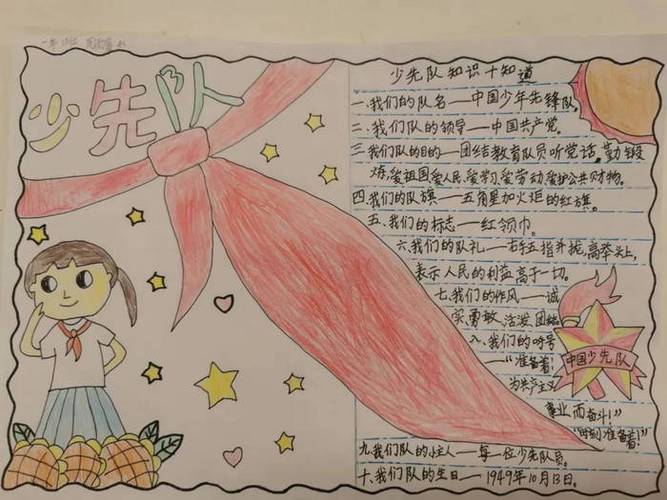 少先队
少先队知识十知道
一.我们的队名——中国少年先锋队。
二.我们队的领导——中国共产党。
三.我们队的目的——团结教育队员听党话,勤锻
炼,爱祖国,爱人民,爱学习,爱劳动,爱护公共财物。
四.我们的队旗——五角星加火炬的红旗。
五.我们的标志——红领巾。
六.我们的队礼——右手五指并拢,高举头上,
表示人民的利益高于一切。
七.我们的作风——诚
实,勇敢,活泼,团结。
八.我们的呼号
——"准备着!
为共产主义
事业而奋斗!"
"时刻准备着!"
中国少先队
九.我们队的主人——每一位少先队员。
十.我们队的生日——1949年10月13日。